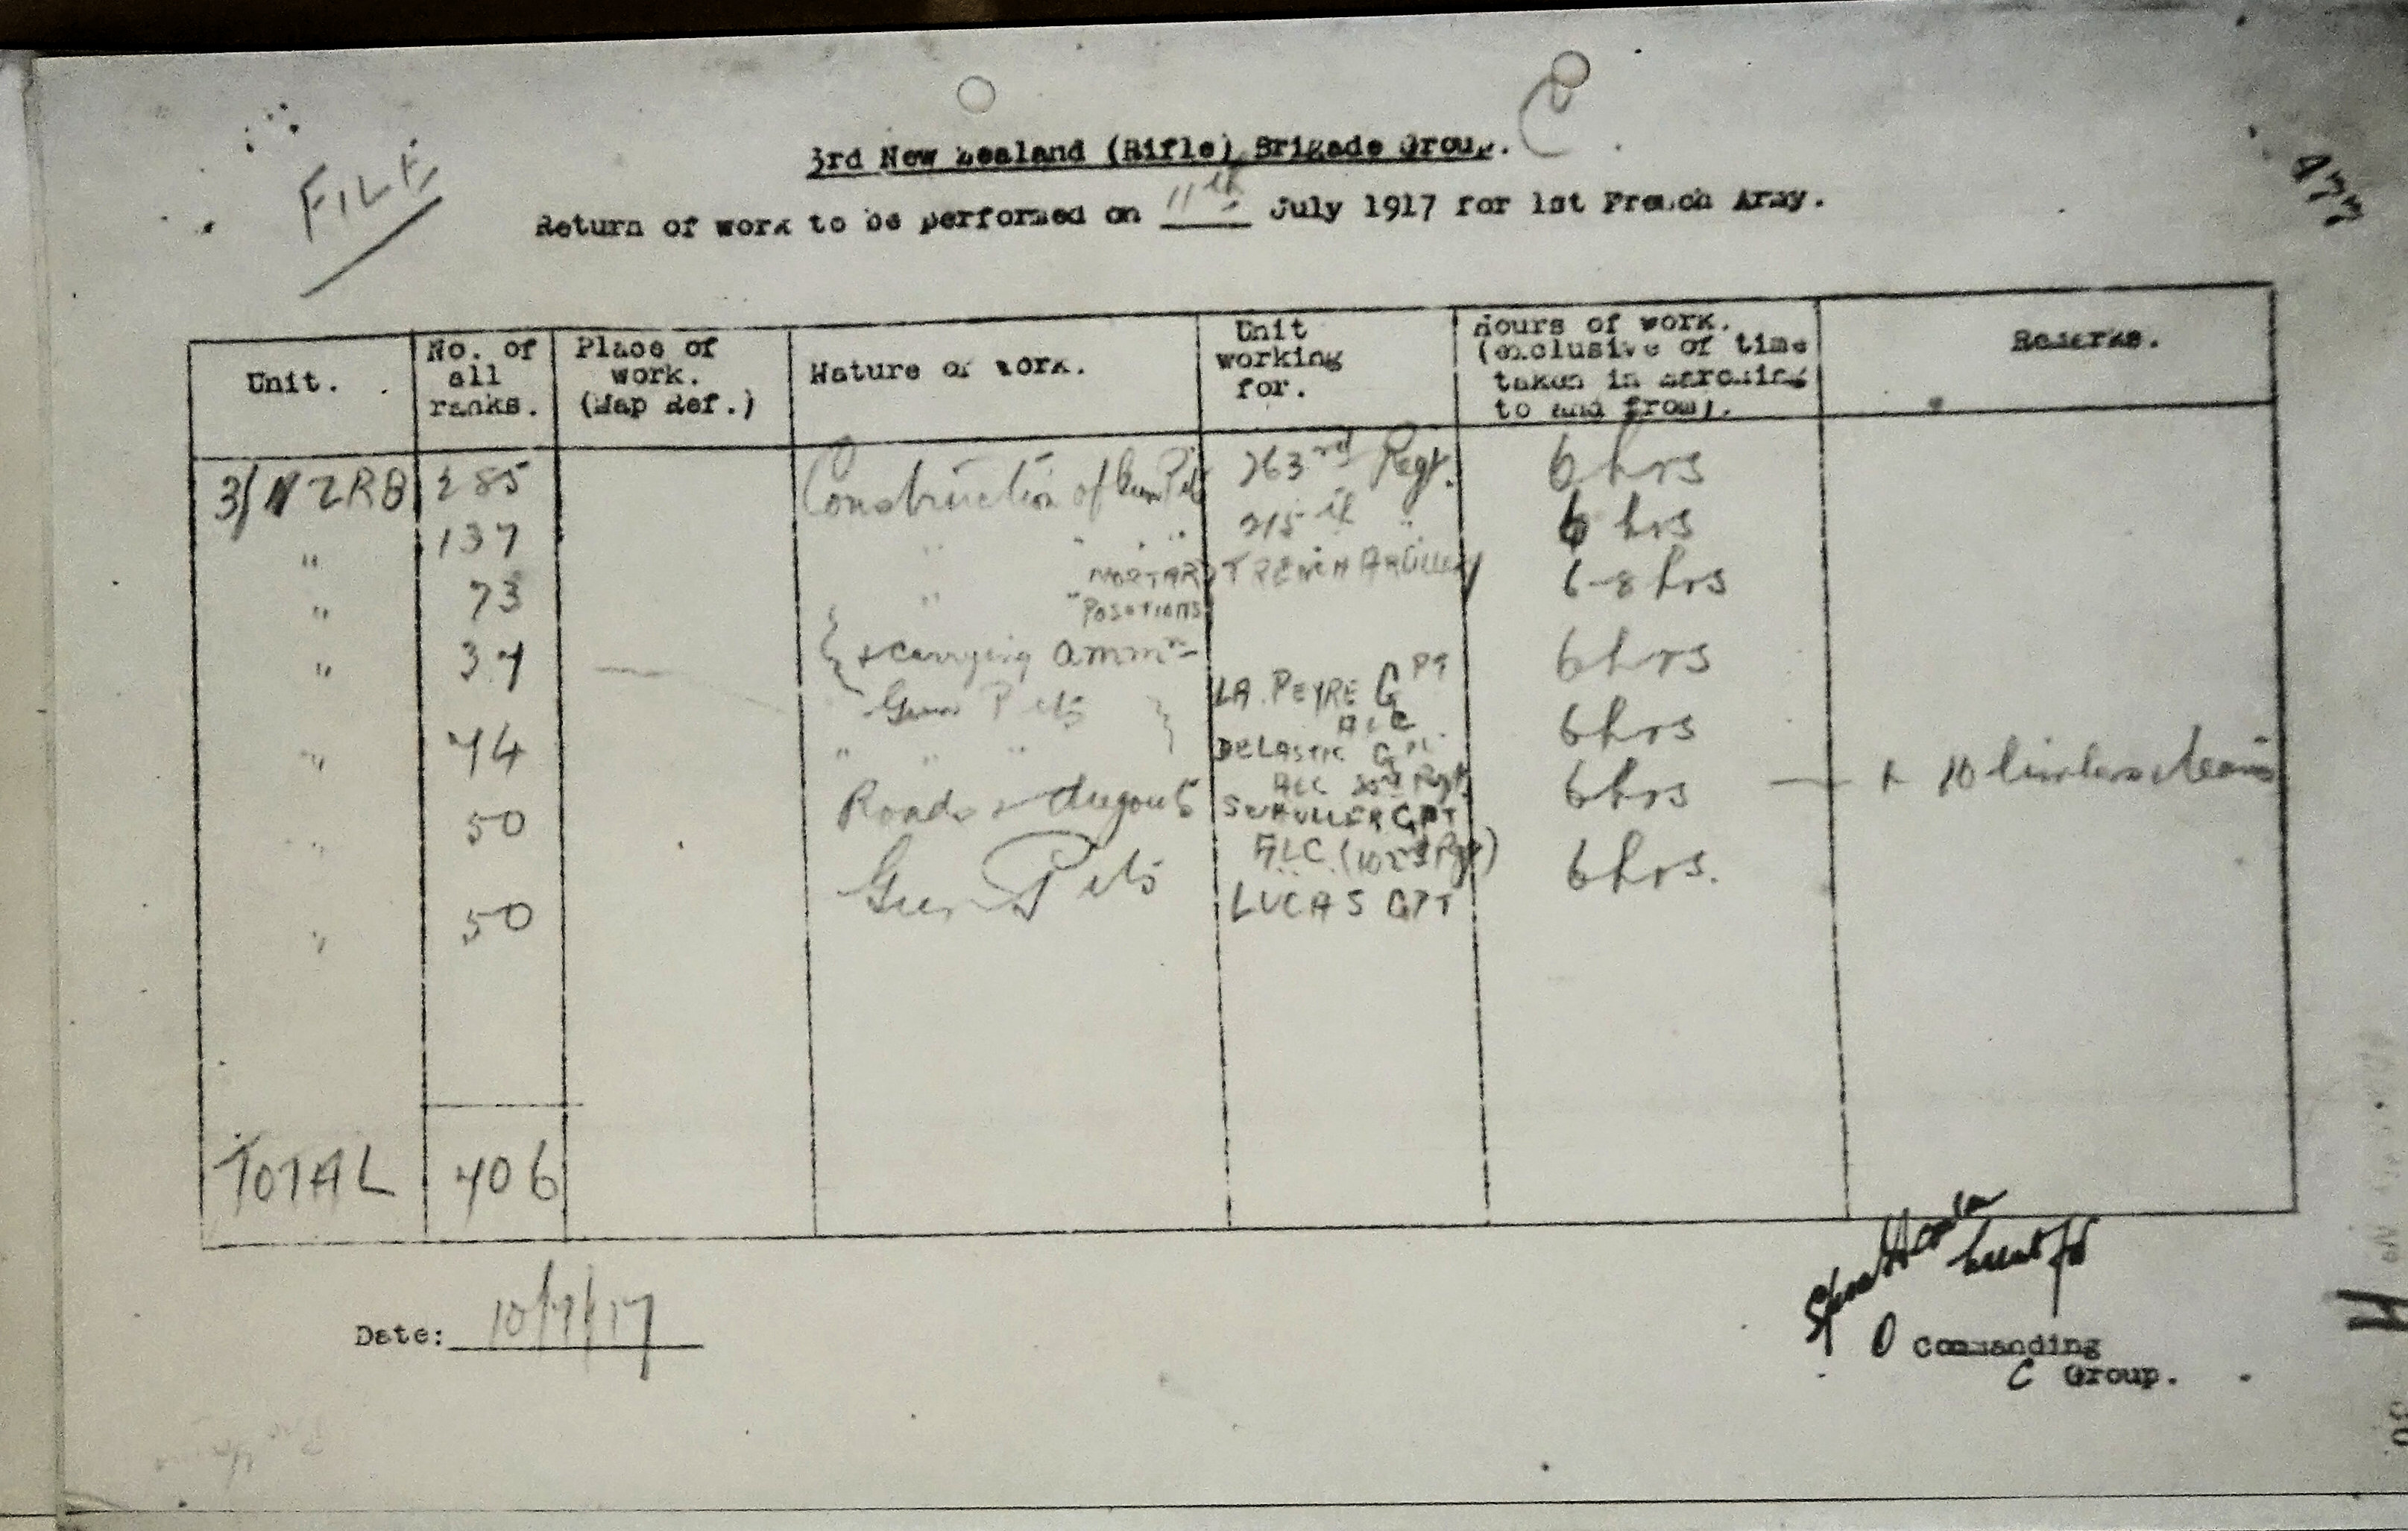 FILE
C
477
3rd New Zealand (Rifle) Brigade Group.
Return of work to be performed on 11th July 1917 for 1st French Army.
Unit. No. of all ranks. Place of work. (Map Ref.) Nature of work. Unit working for. Hours of work. (exclusive of time taken in marching to and from). Remarks.
3/NZRB 285 Construction of Gun Pits 263rd Regt. 6 hrs
" 137 " " " " 215th " 6 hrs
" 73 " MORTAR "POSITIONS TRENCH Artillery 6-8 hrs
" 37 + carrying ammn Gun Pits LA. PEYRE GPT ALC 6 hrs
" 74 " " " GPT ALC Regt. 6 hrs
" 50 Roads + dugouts SCHULLER GPT ALC (102nd Rgt) 6 hrs + 10
" 50 Gun Pits LUCAS GPT 6 hrs.
TOTAL 406
Date: 10/7/17
Lieut for
O Commanding
C Group.